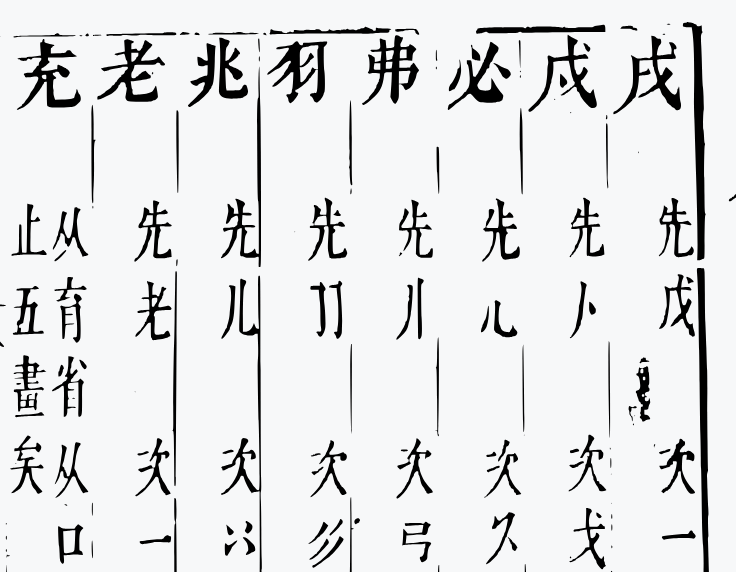 戌先戊次一
戍先卜次戈
必先次
弗先〢次弓
羽先次
兆先儿次
老先老次一
充从育省从口
止五畫矣